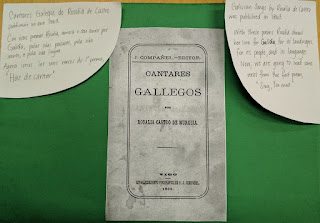 Cantares Gallegos de Rosalía de Castro
publicouse no ano 1863.
Con estes poemas Rosalía, mostra o seu amor por
Galicia, polas súas paisaxes, pola súa
xente, e pola súa lingua.
Agora imos ler uns versos do 1º poema,
"Has de cantar"
J. COMPAÑEL,—EDITOR.
CANTARES
GALLEGOS
POR
ROSALIA CASTRO DE MURGUIA.
VIGO
1863.
Galician Songs by Rosalía de Castro
was published in 1863.
With these poems Rosalía shows
her love for Galicia, for its landscapes,
for its people and its language.
Now, we are going to read some
verses from the first poem,
"Sing, I'm meant".